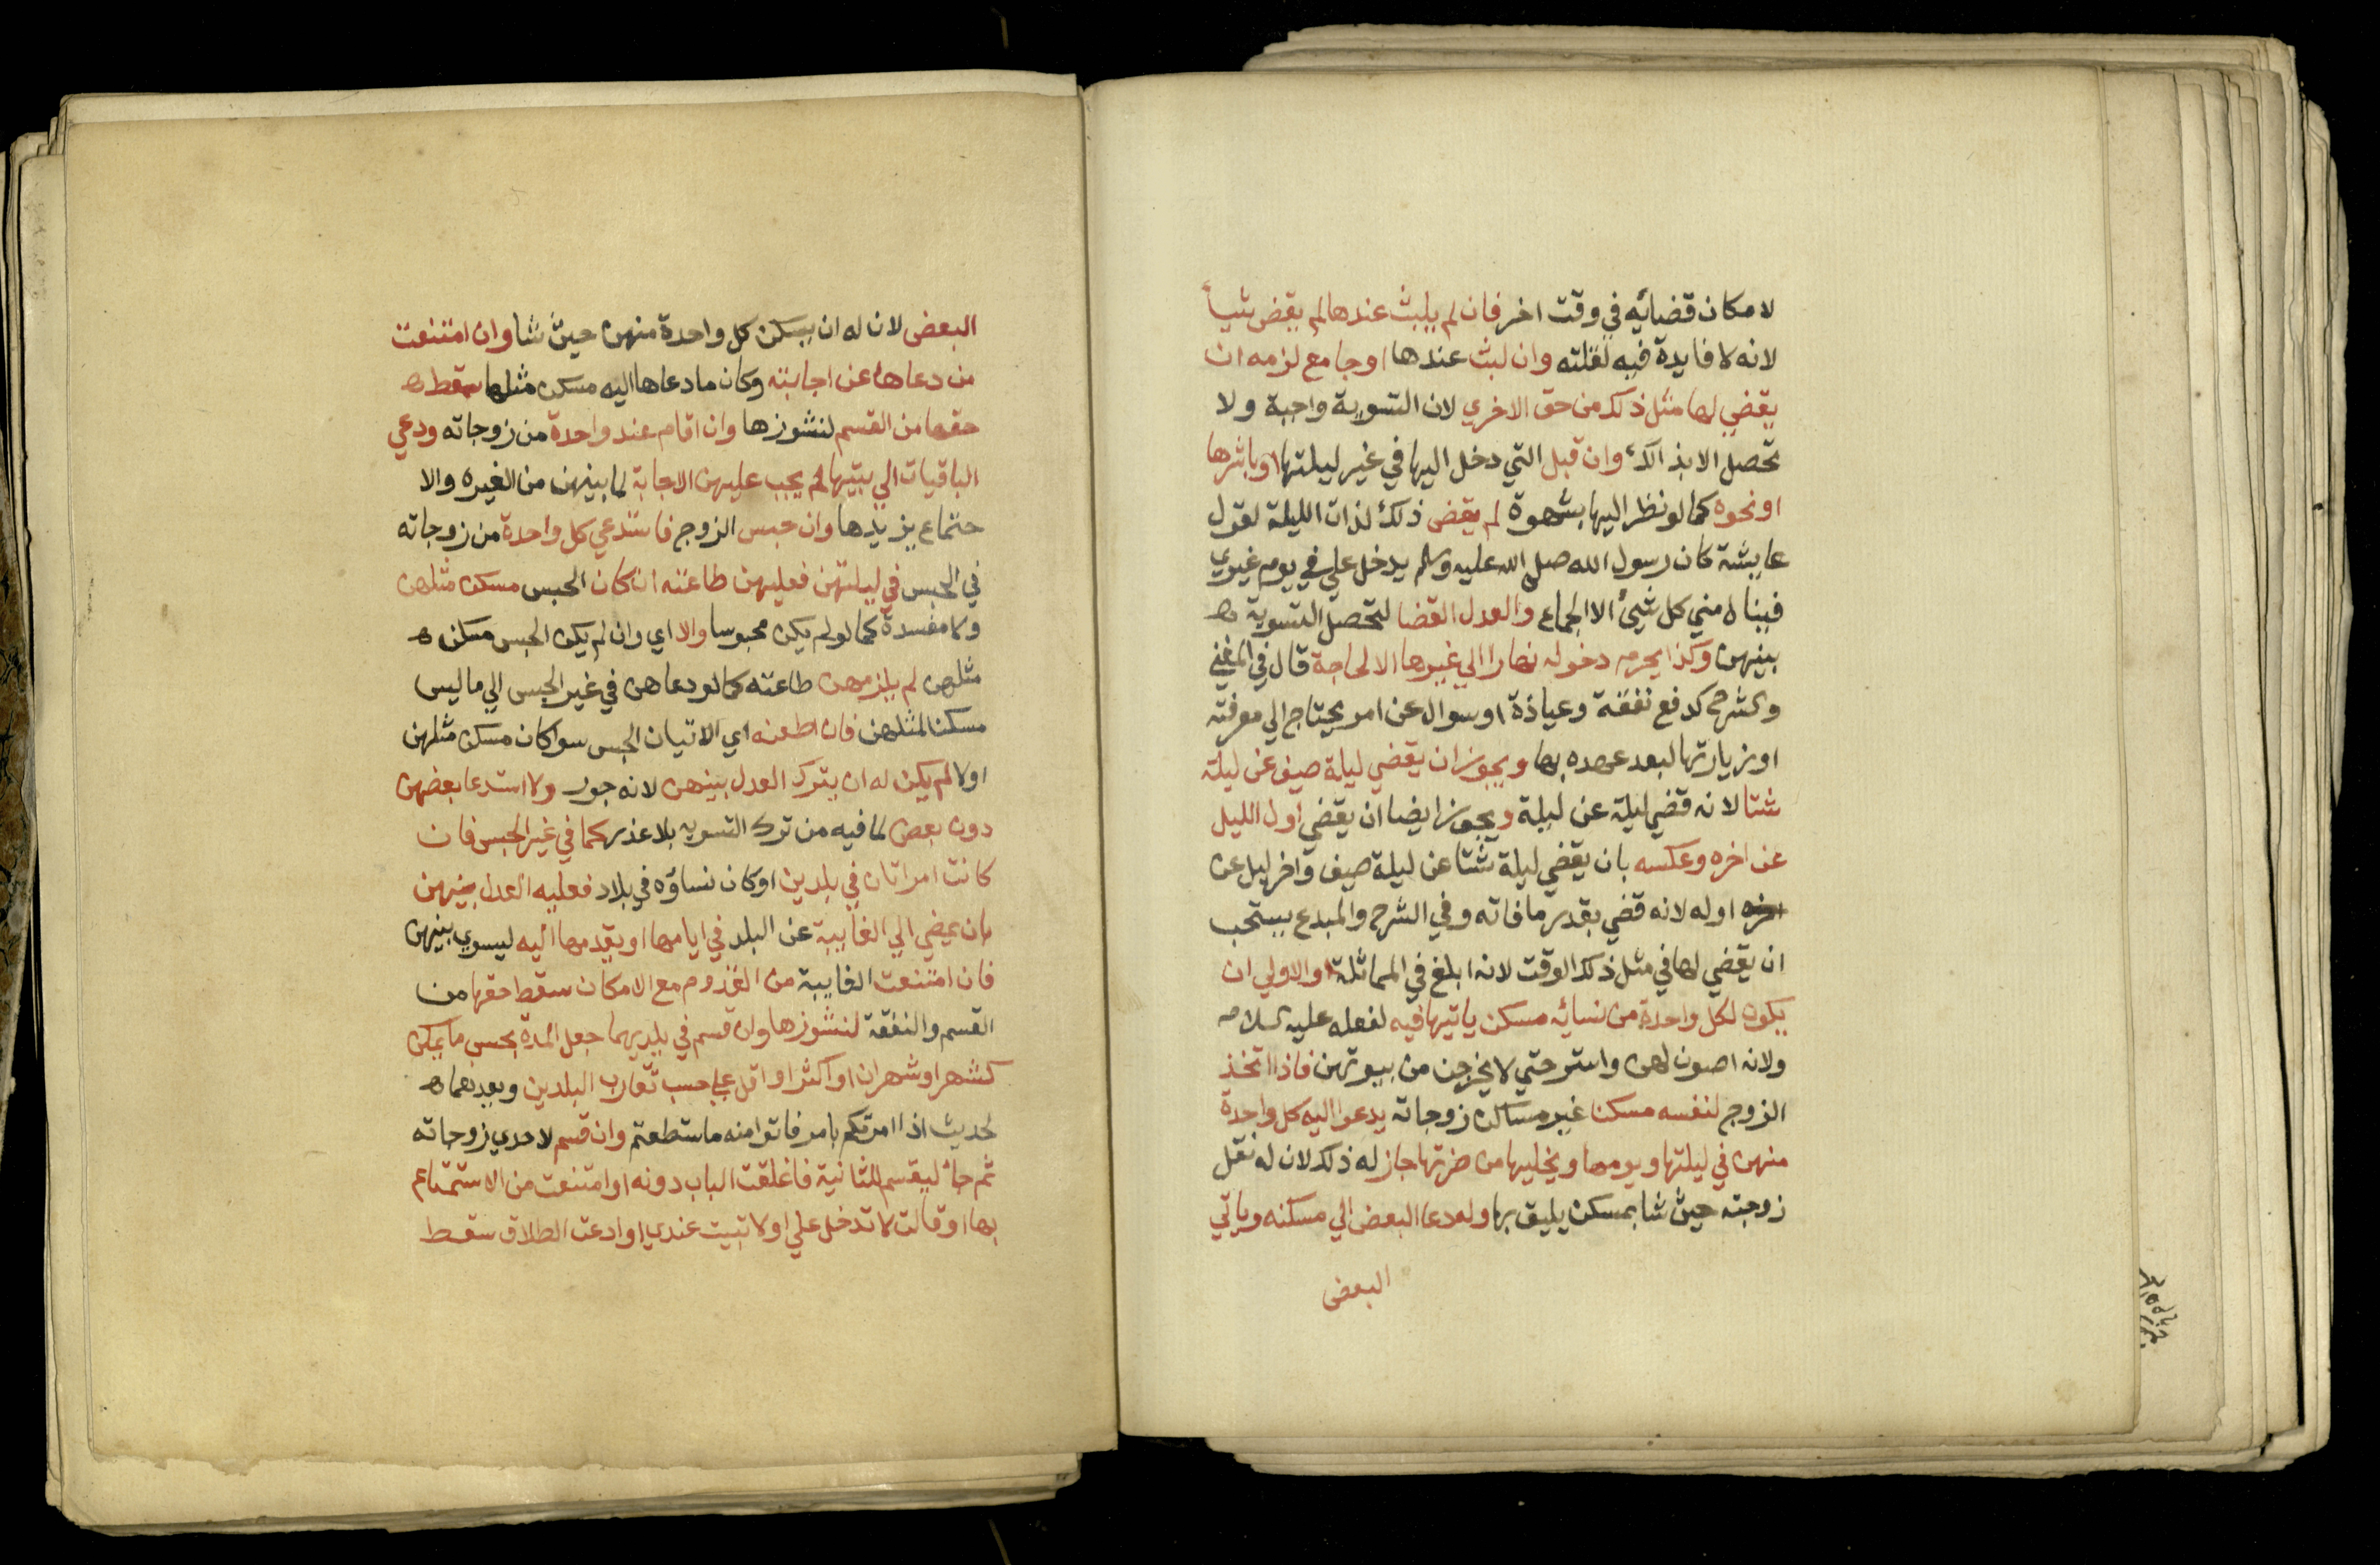 لامكان قضائه في وقت اخر فان لم يلبث عندها لم يقض شيأ
لانه لا فايدة فيه لقلته وان لبث عندها او جامع لزمه ان
يقضي لها مثل ذلك من حق الاخري لان التسوية واجبة ولا
تحصل الا بذالك وان قبل التي دخل اليها في غير ليلتها او باشرها
او نحوه كما لو نظر اليها بشهوة لم يقض ذلك لذات الليلة لقول
عايشة كان رسول الله صلى الله عليه وسلم يدخل علي في يوم غيري
فينال مني كل شيئ الا الجماع والعدل القضا لتحصل التسوية
بينهن وكذا يحرم دخوله نهارا الي غيرها الا لحاجة قال في المغني
والشرح كدفع نفقة وعياذة او سوال عن امر يحتاج الي معرفته
او زيارتها لبعد عهده بها ويجوز ان يقضي ليلة صيف عن ليلة
شتا لانه قضي ليلة عن ليلة ويجوز ايضا ان يقضي اول الليل
عن اخره وعكسه بان يقضي ليلة شتا عن ليلة صيف واخر ليل عن
اوله لانه قضي بقدر ما فاته وفي الشرح والمبدع يستحب
ان يقضي لها في مثل ذلك الوقت لانه ابلغ في المماثلة والاولي ان
يكون لكل واحدة من نسائه مسكن ياتيها فيه لفعله عليه السلام
ولانه اصون لهن واستر حتي لا يخرجن من بيوتهن فاذا اتخذ
الزوج لنفسه مسكنا غير مساكن زوجاته يدعوا اليه كل واحدة
منهن في ليلتها ويومها ويخليها من ضرتها جاز له ذلك لان له نقل
زوجته حيث شا بمسكن يليق بها وله دعا البعض الي مسكنه وياتي
البعض
البعض لان له ان يسكن كل واحدة منهن حيث شا وان امتنعت
من دعاها عن اجابته وكان ما دعاها اليه مسكن مثلها سقط
حقها من القسم لنشوزها وان اقام عند واحدة من زوجاته ودعي
الباقيات الي بيتها لم يجب عليهن الاجابة لما بينهن من الغيره والا
جتماع يزيدها وان حبس الزوج فاستدعي كل واحدة من زوجاته
في الحبس في ليلتهن فعليهن طاعته ان كان الحبس مسكن مثلهن
ولا مفسدة كما لو لم يكن محبوسا والا اي وان لم يكن الحبس مسكن
مثلهن لم يلزمهن طاعته كما لو دعاهن في غير الحبس الي ما ليس
مسكنا لمثلهن فان اطعنه اي الاتيان الحبس سوا كان مسكن مثلهن
اولا لم يكن له ان يترك العدل بينهن لانه جور ولا استدعا بعضهن
دون بعض لما فيه من ترك التسويه بلا عذر كما في غير الحبس فان
كانت امراتان في بلدين او كان نساؤه في بلاد فعليه العدل بينهن
بان يمضي الي الغايبة عن البلد في ايامها او يقدمها اليه ليسوي بينهن
فان امتنعت الغايبة من القدوم مع الامكان سقط حقها من
القسم والنفقة لنشوزها وان قسم في بلديهما جعل المدة بحسب ما يمكن
كشهر او شهران او اكثر او اقل علي حسب تقارب البلدين وبعدهما
لحديث اذا امرتكم بامر فاتوا منه ماستطعتم وان قسم لاحدي زوجاته
ثم جا ليقسم للثانية فاغلقت الباب دونه او امتنعت من الاستمتاع
بها او قالت لا تدخل علي او لا تبيت عندي او ادعت الطلاق سقط